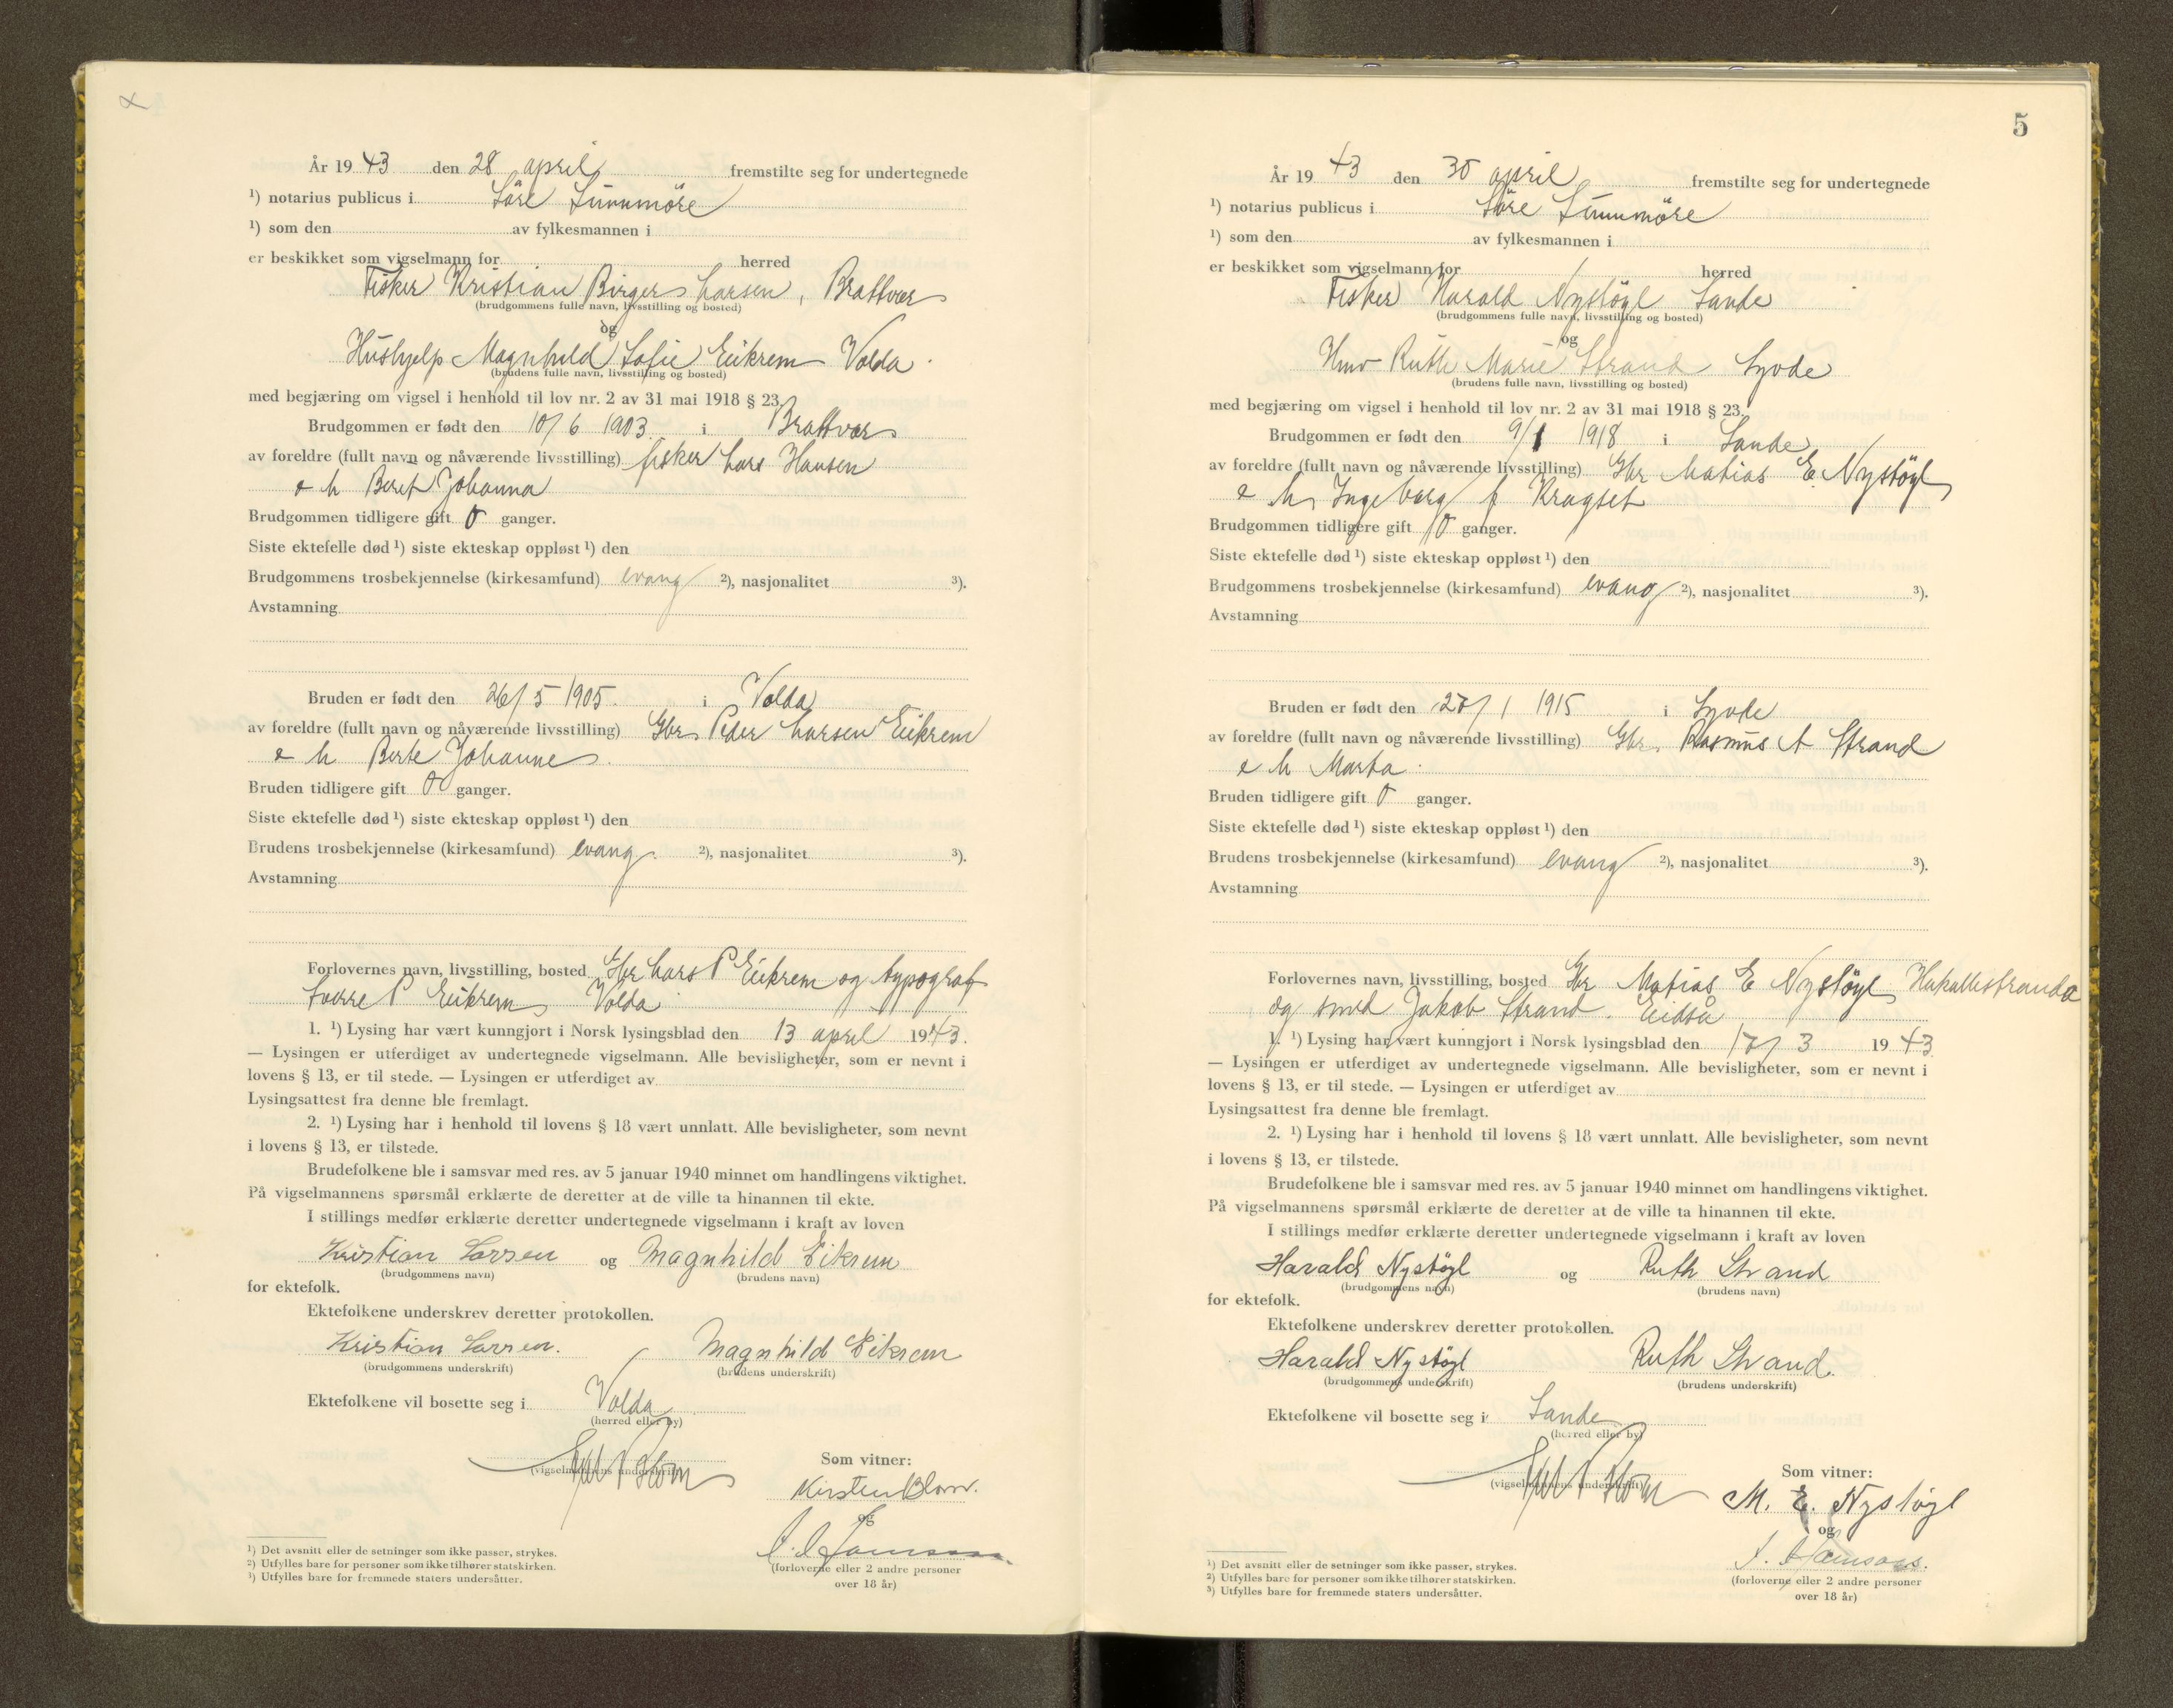 År 19 43 den 28 april fremstilte seg for undertegnede
¹) notarius publicus i Söre Sunnmöre
¹) som den av fylkesmannen i
er beskikket som vigselmann for herred
Fisker Kristian Birger Larsen, Brattvær
(brudgommens fulle navn, livsstilling og bosted)
og
Hushjelp Magnhild Sofie Eikrem Volda
(brudens fulle navn, livsstilling og bosted)
med begjæring om vigsel i henhold til lov nr. 2 av 31 mai 1918 § 23.
Brudgommen er født den 10/6 1903 i Brattvær
av foreldre (fullt navn og nåværende livsstilling) fisker Lars Hansen
o h Beret Johanna
Brudgommen tidligere gift 0 ganger.
Siste ektefelle død ¹) siste ekteskap oppløst ¹) den
Brudgommens trosbekjennelse (kirkesamfund) evang ²), nasjonalitet ³).
Avstamning
Bruden er født den 26/5 1905. i Volda
av foreldre (fullt navn og nåværende livsstilling) Gbr Peder Larsen Eikrem
o h Berte Johanne.
Bruden tidligere gift 0 ganger.
Siste ektefelle død ¹) siste ekteskap oppløst ¹) den
Brudens trosbekjennelse (kirkesamfund) evang. ²), nasjonalitet ³).
Avstamning
Forlovernes navn, livsstilling, bosted Gbr Lars P Eikrem og typograf
Sverre P Eikrem, Volda
1. ¹) Lysing har vært kunngjort i Norsk lysingsblad den 13 april 1943.
— Lysingen er utferdiget av undertegnede vigselmann. Alle bevisligheter, som er nevnt i
lovens § 13, er til stede. — Lysingen er utferdiget av
Lysingsattest fra denne ble fremlagt.
2. ¹) Lysing har i henhold til lovens § 18 vært unnlatt. Alle bevisligheter, som nevnt
i lovens § 13, er tilstede.
Brudefolkene ble i samsvar med res. av 5 januar 1940 minnet om handlingens viktighet.
På vigselmannens spørsmål erklærte de deretter at de ville ta hinannen til ekte.
I stillings medfør erklærte deretter undertegnede vigselmann i kraft av loven
Kristian Larsen og Magnhild Eikrem
(brudgommens navn) (brudens navn)
for ektefolk.
Ektefolkene underskrev deretter protokollen.
Kristian Larsen. Magnhild Eikrem
(brudgommens underskrift) (brudens underskrift)
Ektefolkene vil bosette seg i Volda
(herred eller by)
Som vitner:
(vigselmannens underskrift)
Kirsten Blom.
og
(forloverne eller 2 andre personer
over 18 år)
¹) Det avsnitt eller de setninger som ikke passer, strykes.
²) Utfylles bare for personer som ikke tilhører statskirken.
³) Utfylles bare for fremmede staters undersåtter.
5
År 19 43 den 30 april fremstilte seg for undertegnede
¹) notarius publicus i Söre Sunnmöre
¹) som den av fylkesmannen i
er beskikket som vigselmann for herred
Fisker Harald Nystöyl Sande
(brudgommens fulle navn, livsstilling og bosted)
og
Ruth Marie Strand Syvde
(brudens fulle navn, livsstilling og bosted)
med begjæring om vigsel i henhold til lov nr. 2 av 31 mai 1918 § 23.
Brudgommen er født den 9/1 1918 i Sande
av foreldre (fullt navn og nåværende livsstilling) Gbr Matias E. Nystöyl
o h Ingeborg f Kragset
Brudgommen tidligere gift 0 ganger.
Siste ektefelle død ¹) siste ekteskap oppløst ¹) den
Brudgommens trosbekjennelse (kirkesamfund) evang ²), nasjonalitet ³).
Avstamning
Bruden er født den 27/1 1915 i Syvde
av foreldre (fullt navn og nåværende livsstilling) Gbr. Rasmus A Strand
o h Marta.
Bruden tidligere gift 0 ganger.
Siste ektefelle død ¹) siste ekteskap oppløst ¹) den
Brudens trosbekjennelse (kirkesamfund) evang ²), nasjonalitet ³).
Avstamning
Forlovernes navn, livsstilling, bosted Gbr Matias E Nystöyl Hakallestranda
og smed Jakob Strand. Eidså
1. ¹) Lysing har vært kunngjort i Norsk lysingsblad den 17/3 1943
— Lysingen er utferdiget av undertegnede vigselmann. Alle bevisligheter, som er nevnt i
lovens § 13, er til stede. — Lysingen er utferdiget av
Lysingsattest fra denne ble fremlagt.
2. ¹) Lysing har i henhold til lovens § 18 vært unnlatt. Alle bevisligheter, som nevnt
i lovens § 13, er tilstede.
Brudefolkene ble i samsvar med res. av 5 januar 1940 minnet om handlingens viktighet.
På vigselmannens spørsmål erklærte de deretter at de ville ta hinannen til ekte.
I stillings medfør erklærte deretter undertegnede vigselmann i kraft av loven
Harald Nystöyl og Ruth Strand
(brudgommens navn) (brudens navn)
for ektefolk.
Ektefolkene underskrev deretter protokollen.
Harald Nystöyl Ruth Strand.
(brudgommens underskrift) (brudens underskrift)
Ektefolkene vil bosette seg i Sande
(herred eller by)
Som vitner:
(vigselmannens underskrift)
M. E. Nystöyl
og
(forloverne eller 2 andre personer
over 18 år)
¹) Det avsnitt eller de setninger som ikke passer, strykes.
²) Utfylles bare for personer som ikke tilhører statskirken.
³) Utfylles bare for fremmede staters undersåtter.